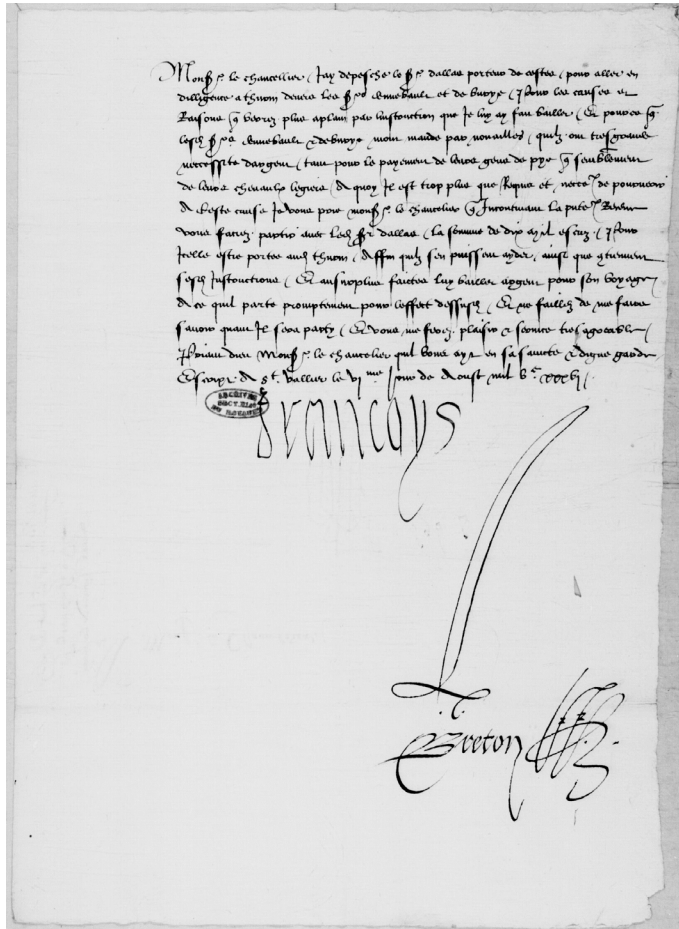 Mons.r le chancellier / Jay depesche le s.r dallas porteur de cestes / pour aller en
dilligence a thurin devers les s.rs dannebault et de burye / pour les causes et
Raisons q verrez plus aplain par linstruction que je luy ay fait bailler / Et pource q
lesd s.rs dannebault & de burye mont mande par noailles / quilz ont tresgrande
neccessite dargent / tant pour le payement de leurs gens de pye q semblement
de leurs chevaulx legiers / A quoy Il est trop plus que Requis et necc.re de pourveoir
A ceste cause Je vous prie mons.r le chancelier q Incontinant la pnte Receue
vous faciez partir avec led s.r dallas / la somme de dix mil escuz / pour
Icelle estre portee aud thurin / Affin quilz sen puissent ayder / ainsi que contiennent
sesd Instructions / Et au surplus faictes luy bailler argent pour son voyage
A ce quil parte promptement pour leffect dessusd / Et ne faillez de me faire
savoir quant Il sera party / Et vous me ferez plaisir & service tres agreable /
Priant dieu Mons.r le chancelier quil vous ayt en sa saincte & digne garde
Escript A S.t vallier le vi.me Jour de Aoust mil v.c xxxvi /
ARCHIVES
DU ROYAUME
Francoys
Breton